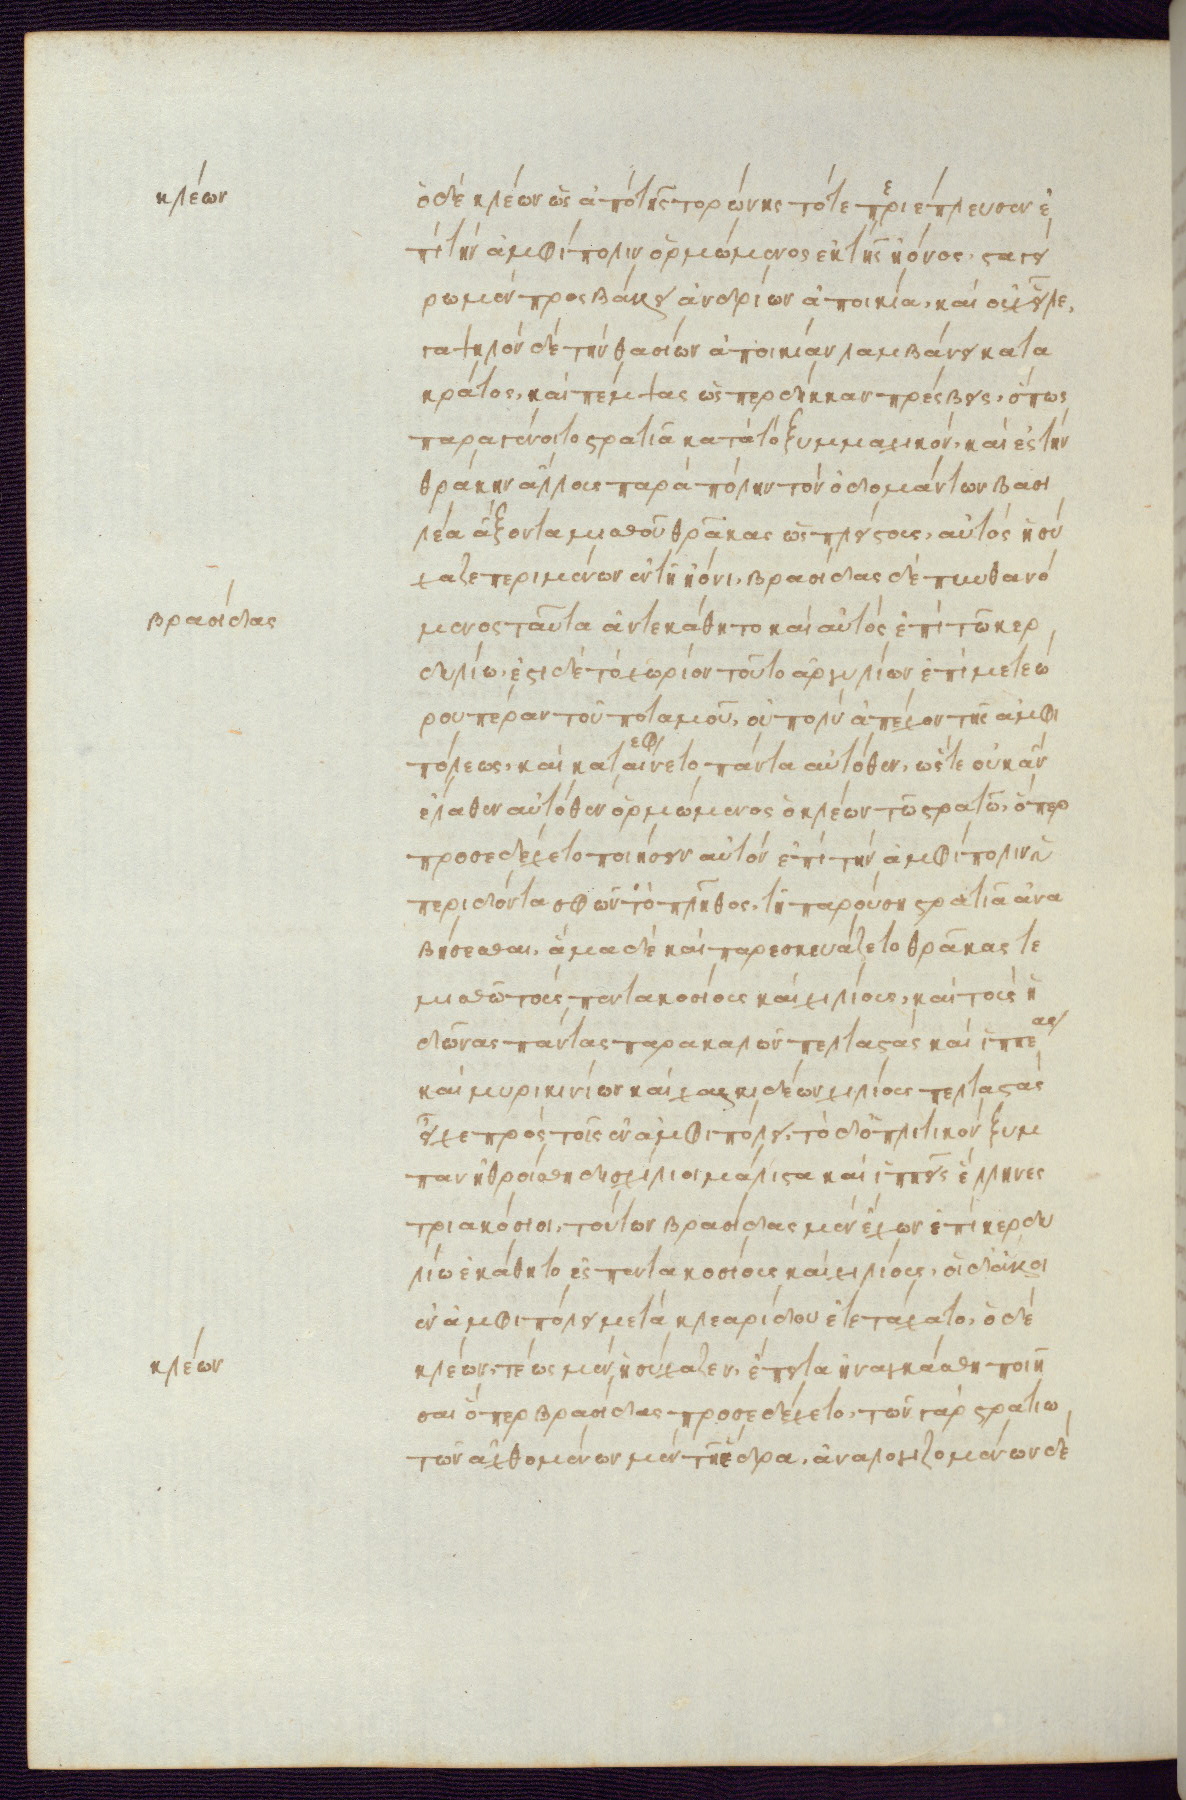 κλέων
ὁ δέ κλέων ὡς ἀπό τῆς τορώνης τότε περιέπλευσεν ἐ
πί τήν ἀμφίπολιν ὁρμώμενος ἐκ τῆς ἠόνος, σταγεί
ρω μέν προσβάλλει ἀνδρίων ἀποικία, καί οὐχ εἷλε,
γαψηλόν δέ τήν θασίων ἀποικίαν λαμβάνει κατα
κράτος, καί πέμψας ὡς περδίκκαν πρέσβεις, ὅπως
παραγένοιτο στρατιᾶ κατά τό ξυμμαχικόν, καί ἐς τήν
θράκην ἄλλους παρά πόλην τόν ὀδομάντων βασι
λέα ἄξοντα μισθοῦ θρᾶκας ὡς πλείστους, αὐτός ἡσύ
χαζε περιμένων ἐν τῆ ἠόνι, βρασίδας δέ πυνθανό
βρασίδας
μενος ταῦτα ἀντεκάθητο καί αὐτός ἐπί τῶ κερ
δυλίω, ἔστι δέ τό χωρίον τοῦτο ἀργιλίων ἐπί μετεώ
ρου πέραν τοῦ ποταμοῦ, οὐ πολύ ἀπέχον τῆς ἀμφι
πόλεως, καί κατεφαίνετο πάντα αὐτόθεν, ὥστε οὐκ ἄν
ἔλαθεν αὐτόθεν ὁρμώμενος ὁ κλέων τῶ στρατῶ, ὅπερ
προσεδέχετο ποιήσειν αὐτόν ἐπί τήν ἀμφίπολιν
περιδόντα σφῶν τό πλῆθος, τῆ παρούση στρατιᾶ ἀνα
βήσεσθαι, ἅμα δέ καί παρεσκευάζετο θρᾶκας τε
μισθωτούς πεντακοσίους καί χιλίους, καί τούς ἠ
δῶνας πάντας παρακαλῶν πελταστάς καί ἱππέας
καί μυρκινίων καί χαλκιδέων χιλίους πελταστάς
εἶχε πρός τοῖς ἐν ἀμφιπόλει, τό δ' ὁπλιτικόν ξυμ
παν ἠθροίσθη δισχίλιοι μάλιστα καί ἱππεῖς ἕλληνες
τριακόσιοι, τούτων βρασίδας μέν ἔχων ἐπί κερδυ
λίω ἐκάθητο ἐς πεντακοσίους καί χιλίους, οἱ δ' ἄλλοι
ἐν ἀμφιπόλει μετά κλεαρίδου ἐτετάχατο, ὁ δέ
κλέων
κλέων, τέως μέν ἡσύχαζεν, ἔπειτα ἠναγκάσθη ποιῆ
σαι ὅπερ βρασίδας προσεδέχετο, τῶν γάρ στρατιω
τῶν ἀχθομένων μέν τῆ ἕδρα, ἀναλογιζομένων δέ